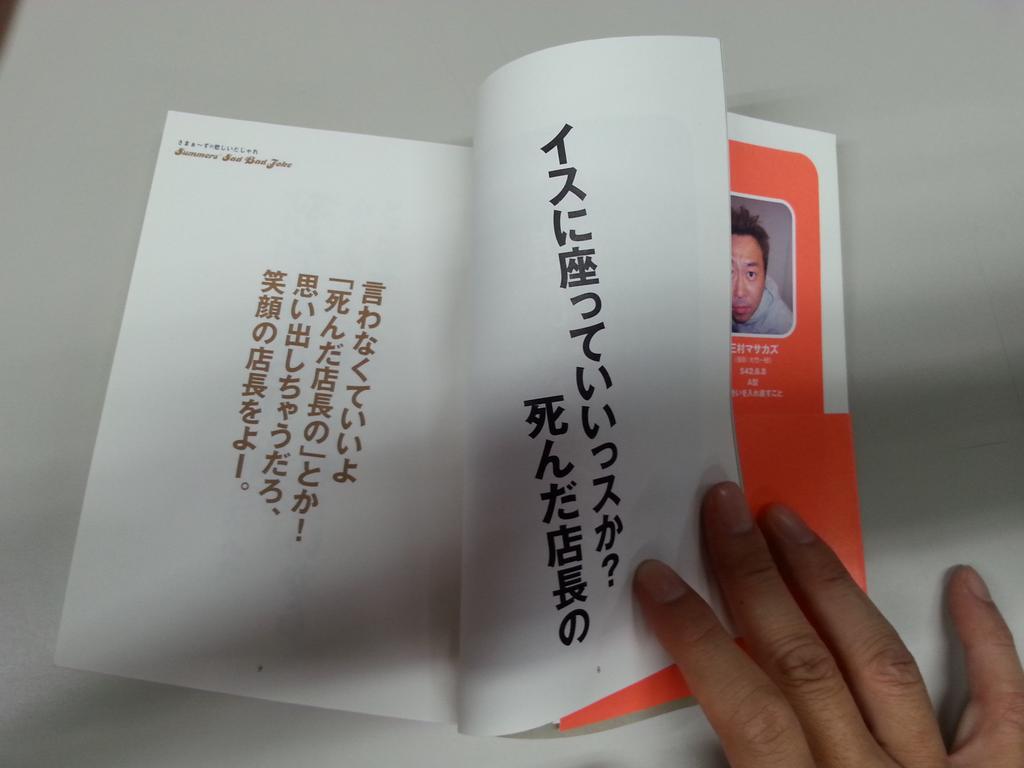 イスに座っていいっスか?
死んだ店長の
さまぁ〜ずの悲しいだじゃれ
Summers Sad Bad Joke
言わなくていいよ
「死んだ店長の」とか!
思い出しちゃうだろ、
笑顔の店長をよー。
三村マサカズ
S42.6.8
A型